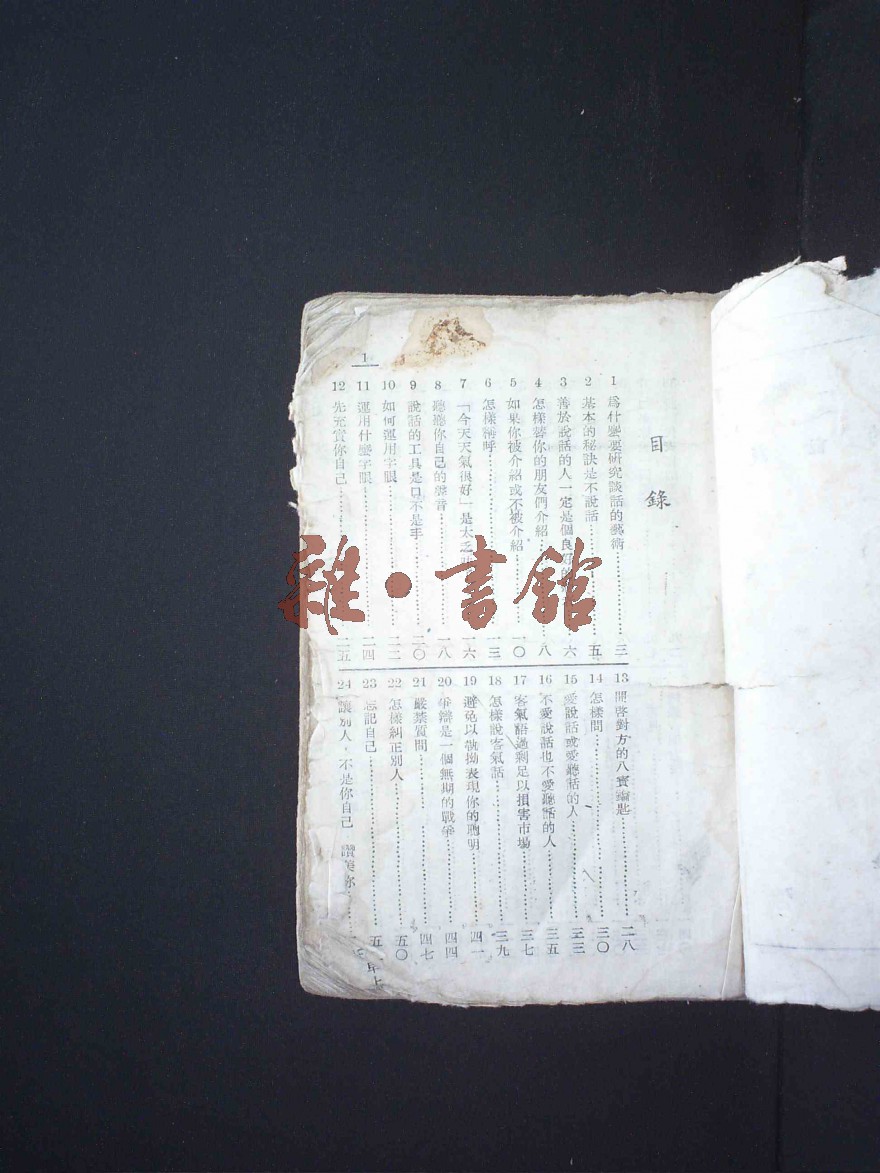 目錄
1 爲什麼要研究談話的藝術……三
2 基本的秘訣是不說話……五
3 善於說話的人一定是個良好……六
4 怎樣替你的朋友們介紹……八
5 如果你被介紹或不被介紹……一〇
6 怎樣稱呼……一三
7 「今天天氣很好」是太乏……一六
8 聽聽你自己的聲音……一八
9 說話的工具是口不是手……二〇
10 如何運用字眼……二二
11 運用什麼字眼……二四
12 先充實你自己……二五
13 開啓對方的八寶鑰匙……二八
14 怎樣問……三〇
15 愛說話或愛聽話的人……三三
16 不愛說話也不愛聽話的人……三五
17 客氣語過剩足以損害市場……三七
18 怎樣說客氣話……三九
19 避免以執拗表現你的聰明……四一
20 爭辯是一個無期的戰爭……四四
21 嚴禁質問……四七
22 怎樣糾正別人……五〇
23 忘記自己……五
24 讓別人,不是你自己 讚美你
1
雜·書館